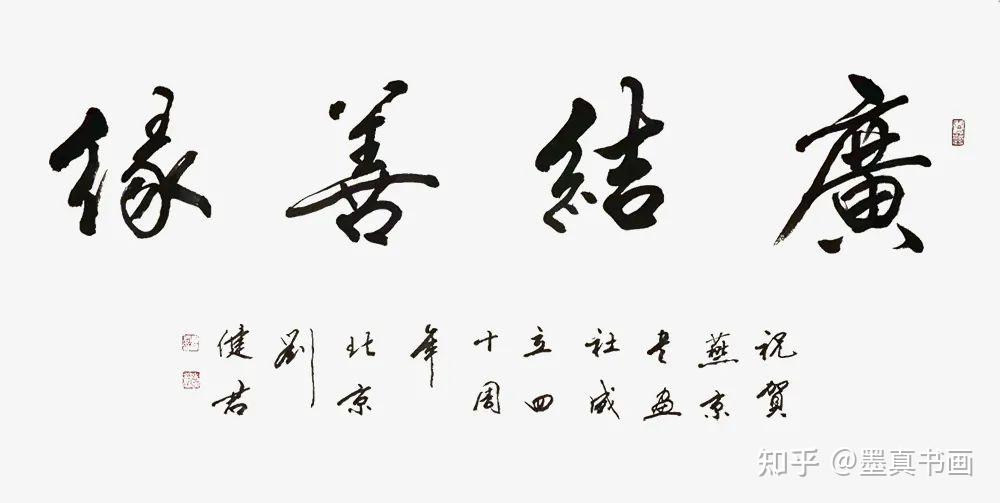 廣結善緣
祝賀
燕京
书畫
社成
立四
十周
年
北京
劉
健君
知乎 @墨真书画